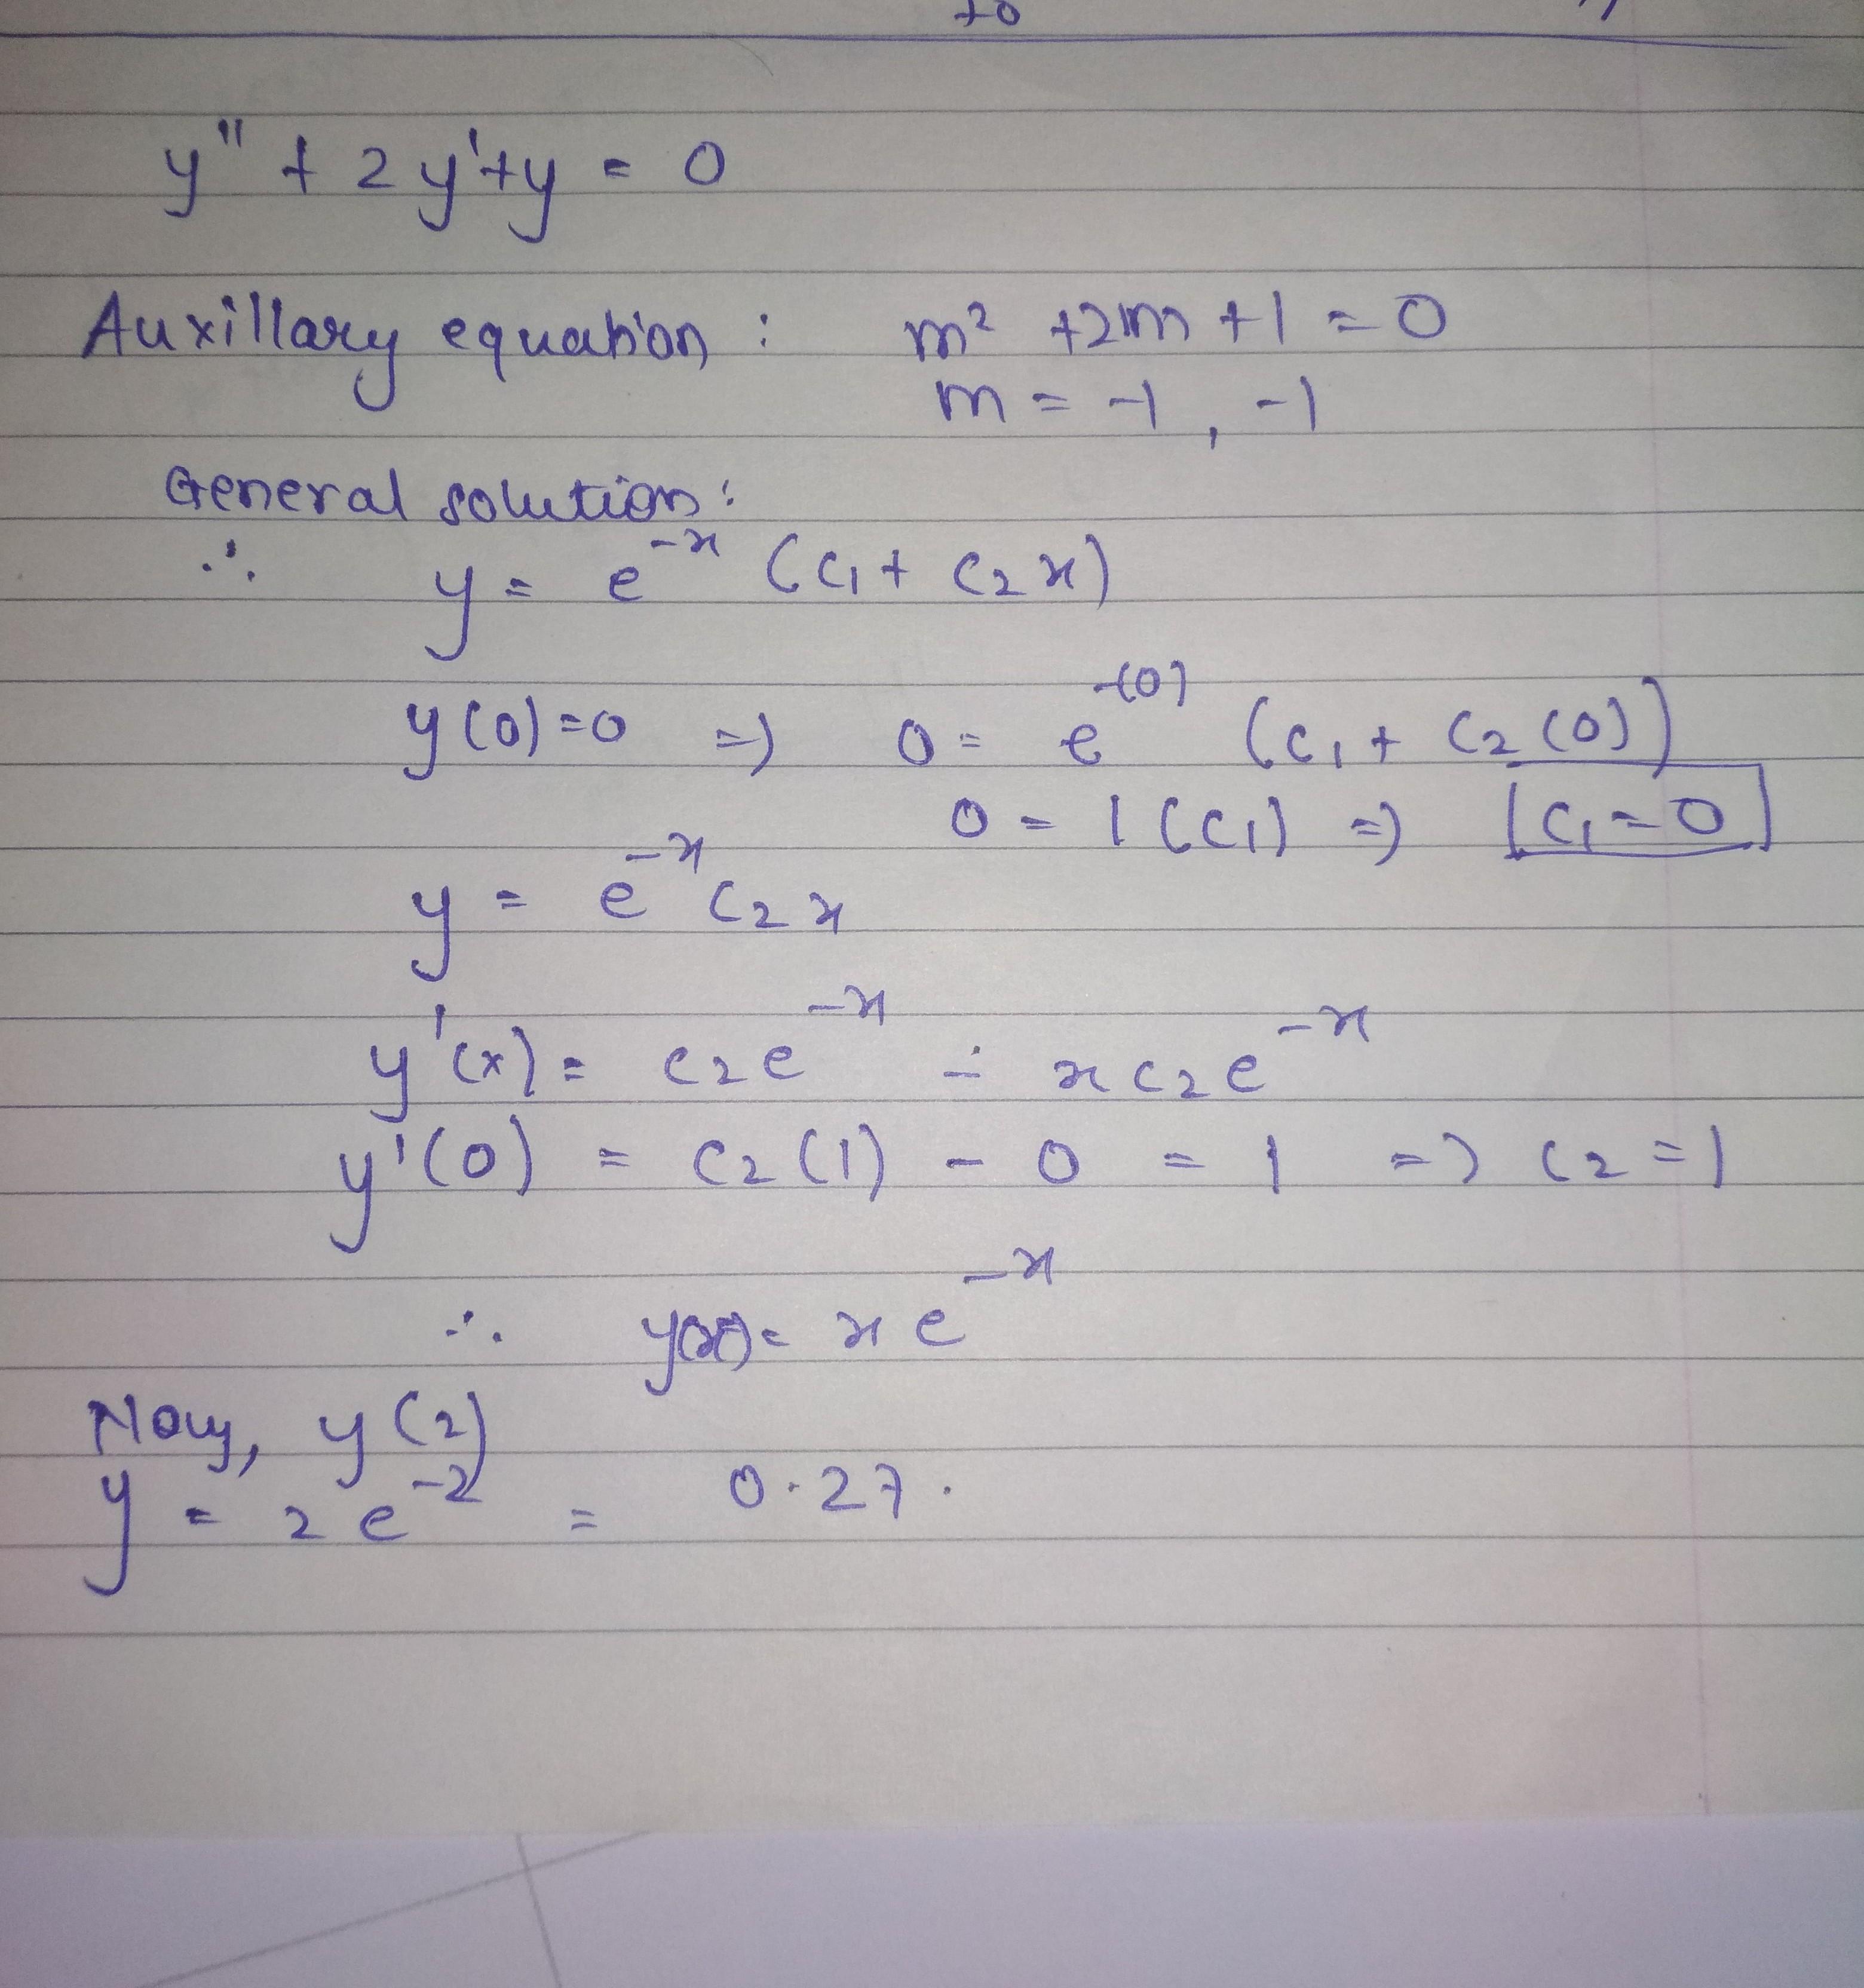 y" + 2y'+y = 0
Auxillary equation : m² +2m +1 = 0
m = -1 , -1
General solution:
∴ y = e^{-x} (c₁+ c₂x)
y(0)=0 => 0 = e^{-(0)} (c₁+ c₂(0))
0 = 1(c₁) => c₁=0
y = e^{-x} c₂x
y'(x) = c₂e^{-x} - xc₂e^{-x}
y'(0) = c₂(1) - 0 = 1 => c₂=1
∴ y(x)= xe^{-x}
Now, y(2)
y = 2e^{-2} = 0.27.